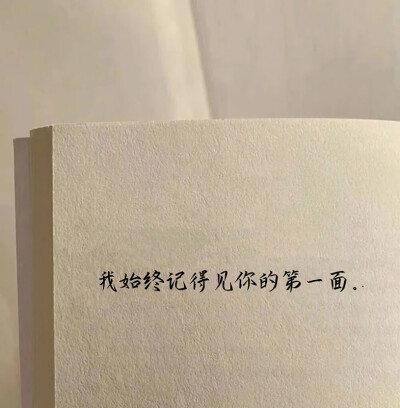 我始终记得见你的第一面。